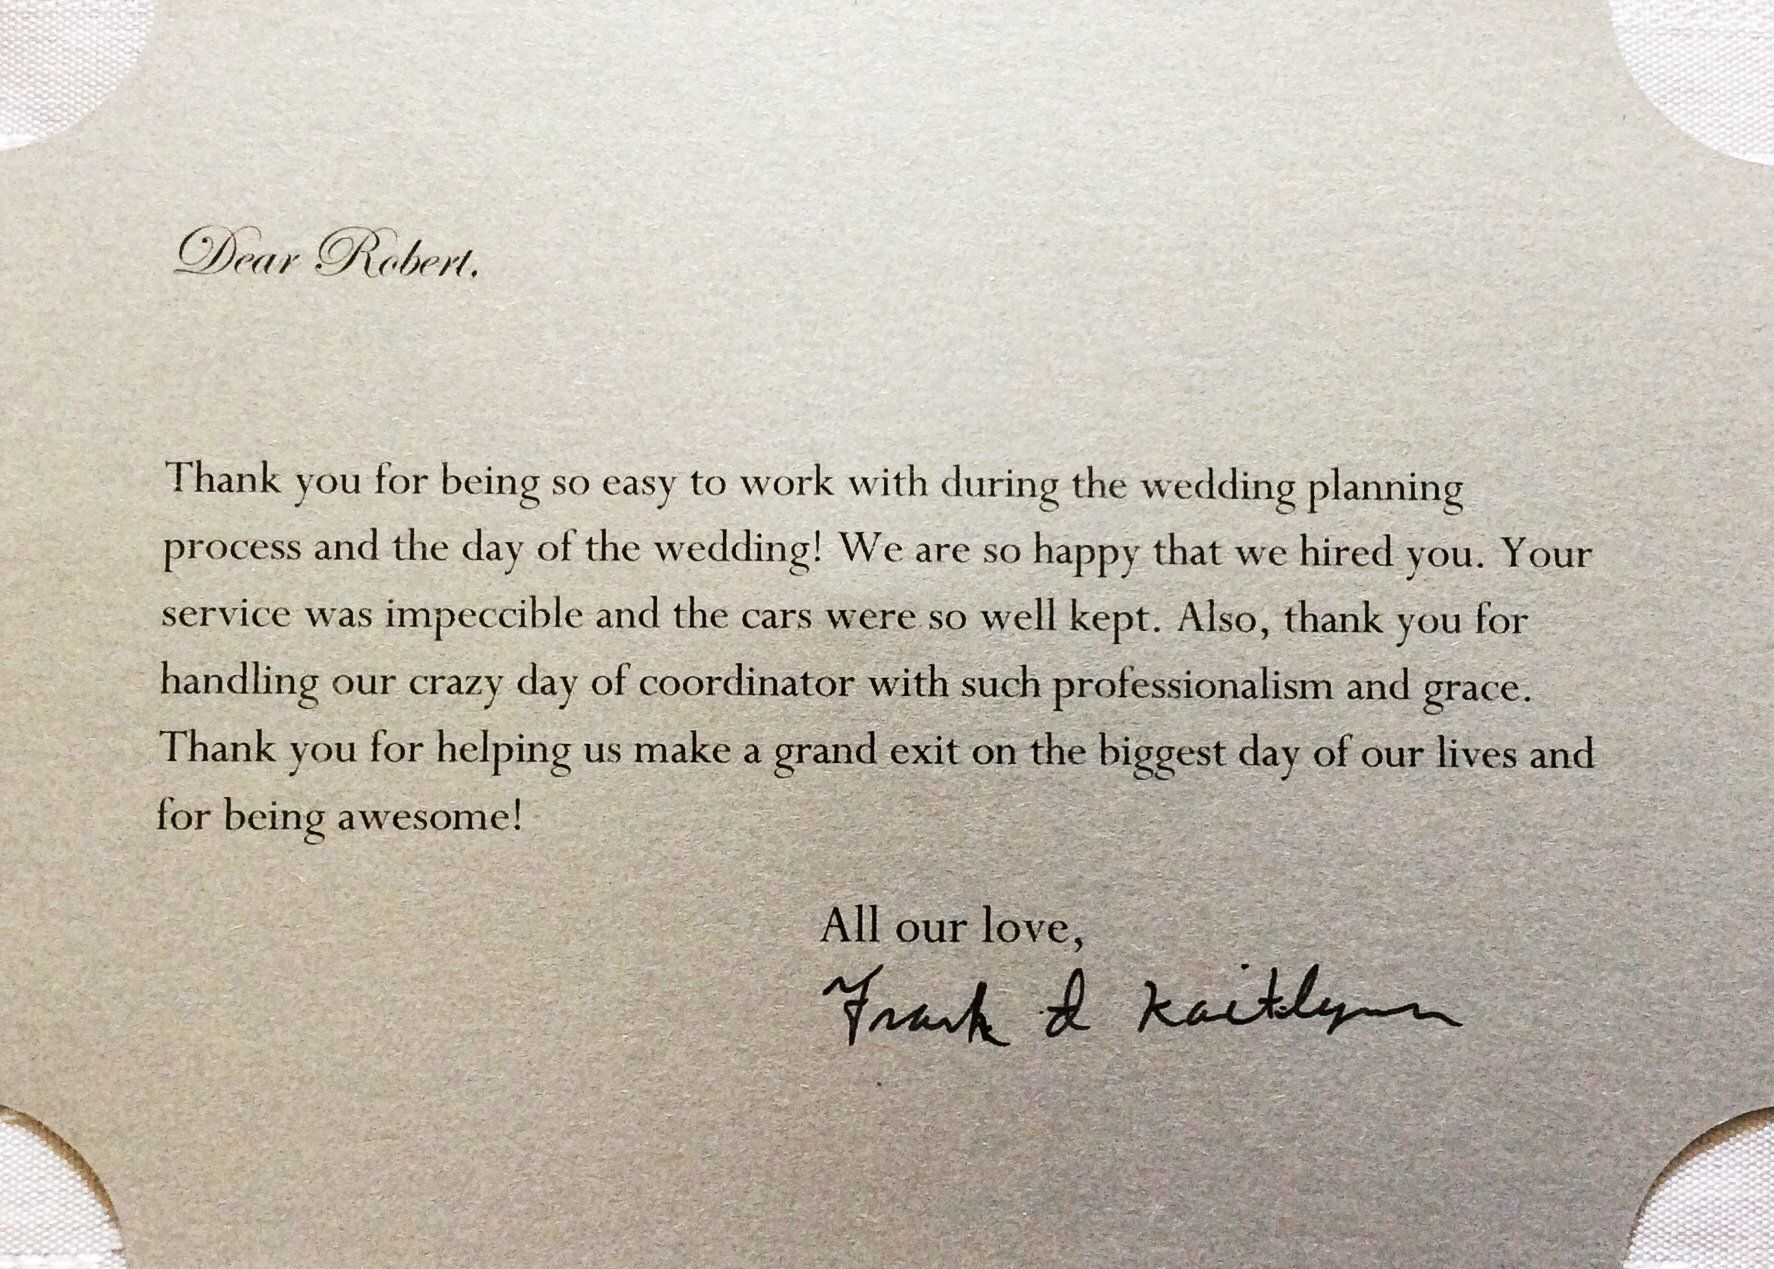 Dear Robert,
Thank you for being so easy to work with during the wedding planning
process and the day of the wedding! We are so happy that we hired you. Your
service was impeccible and the cars were so well kept. Also, thank you for
handling our crazy day of coordinator with such professionalism and grace.
Thank you for helping us make a grand exit on the biggest day of our lives and
for being awesome!
All our love,
Frank & Kaitlynn